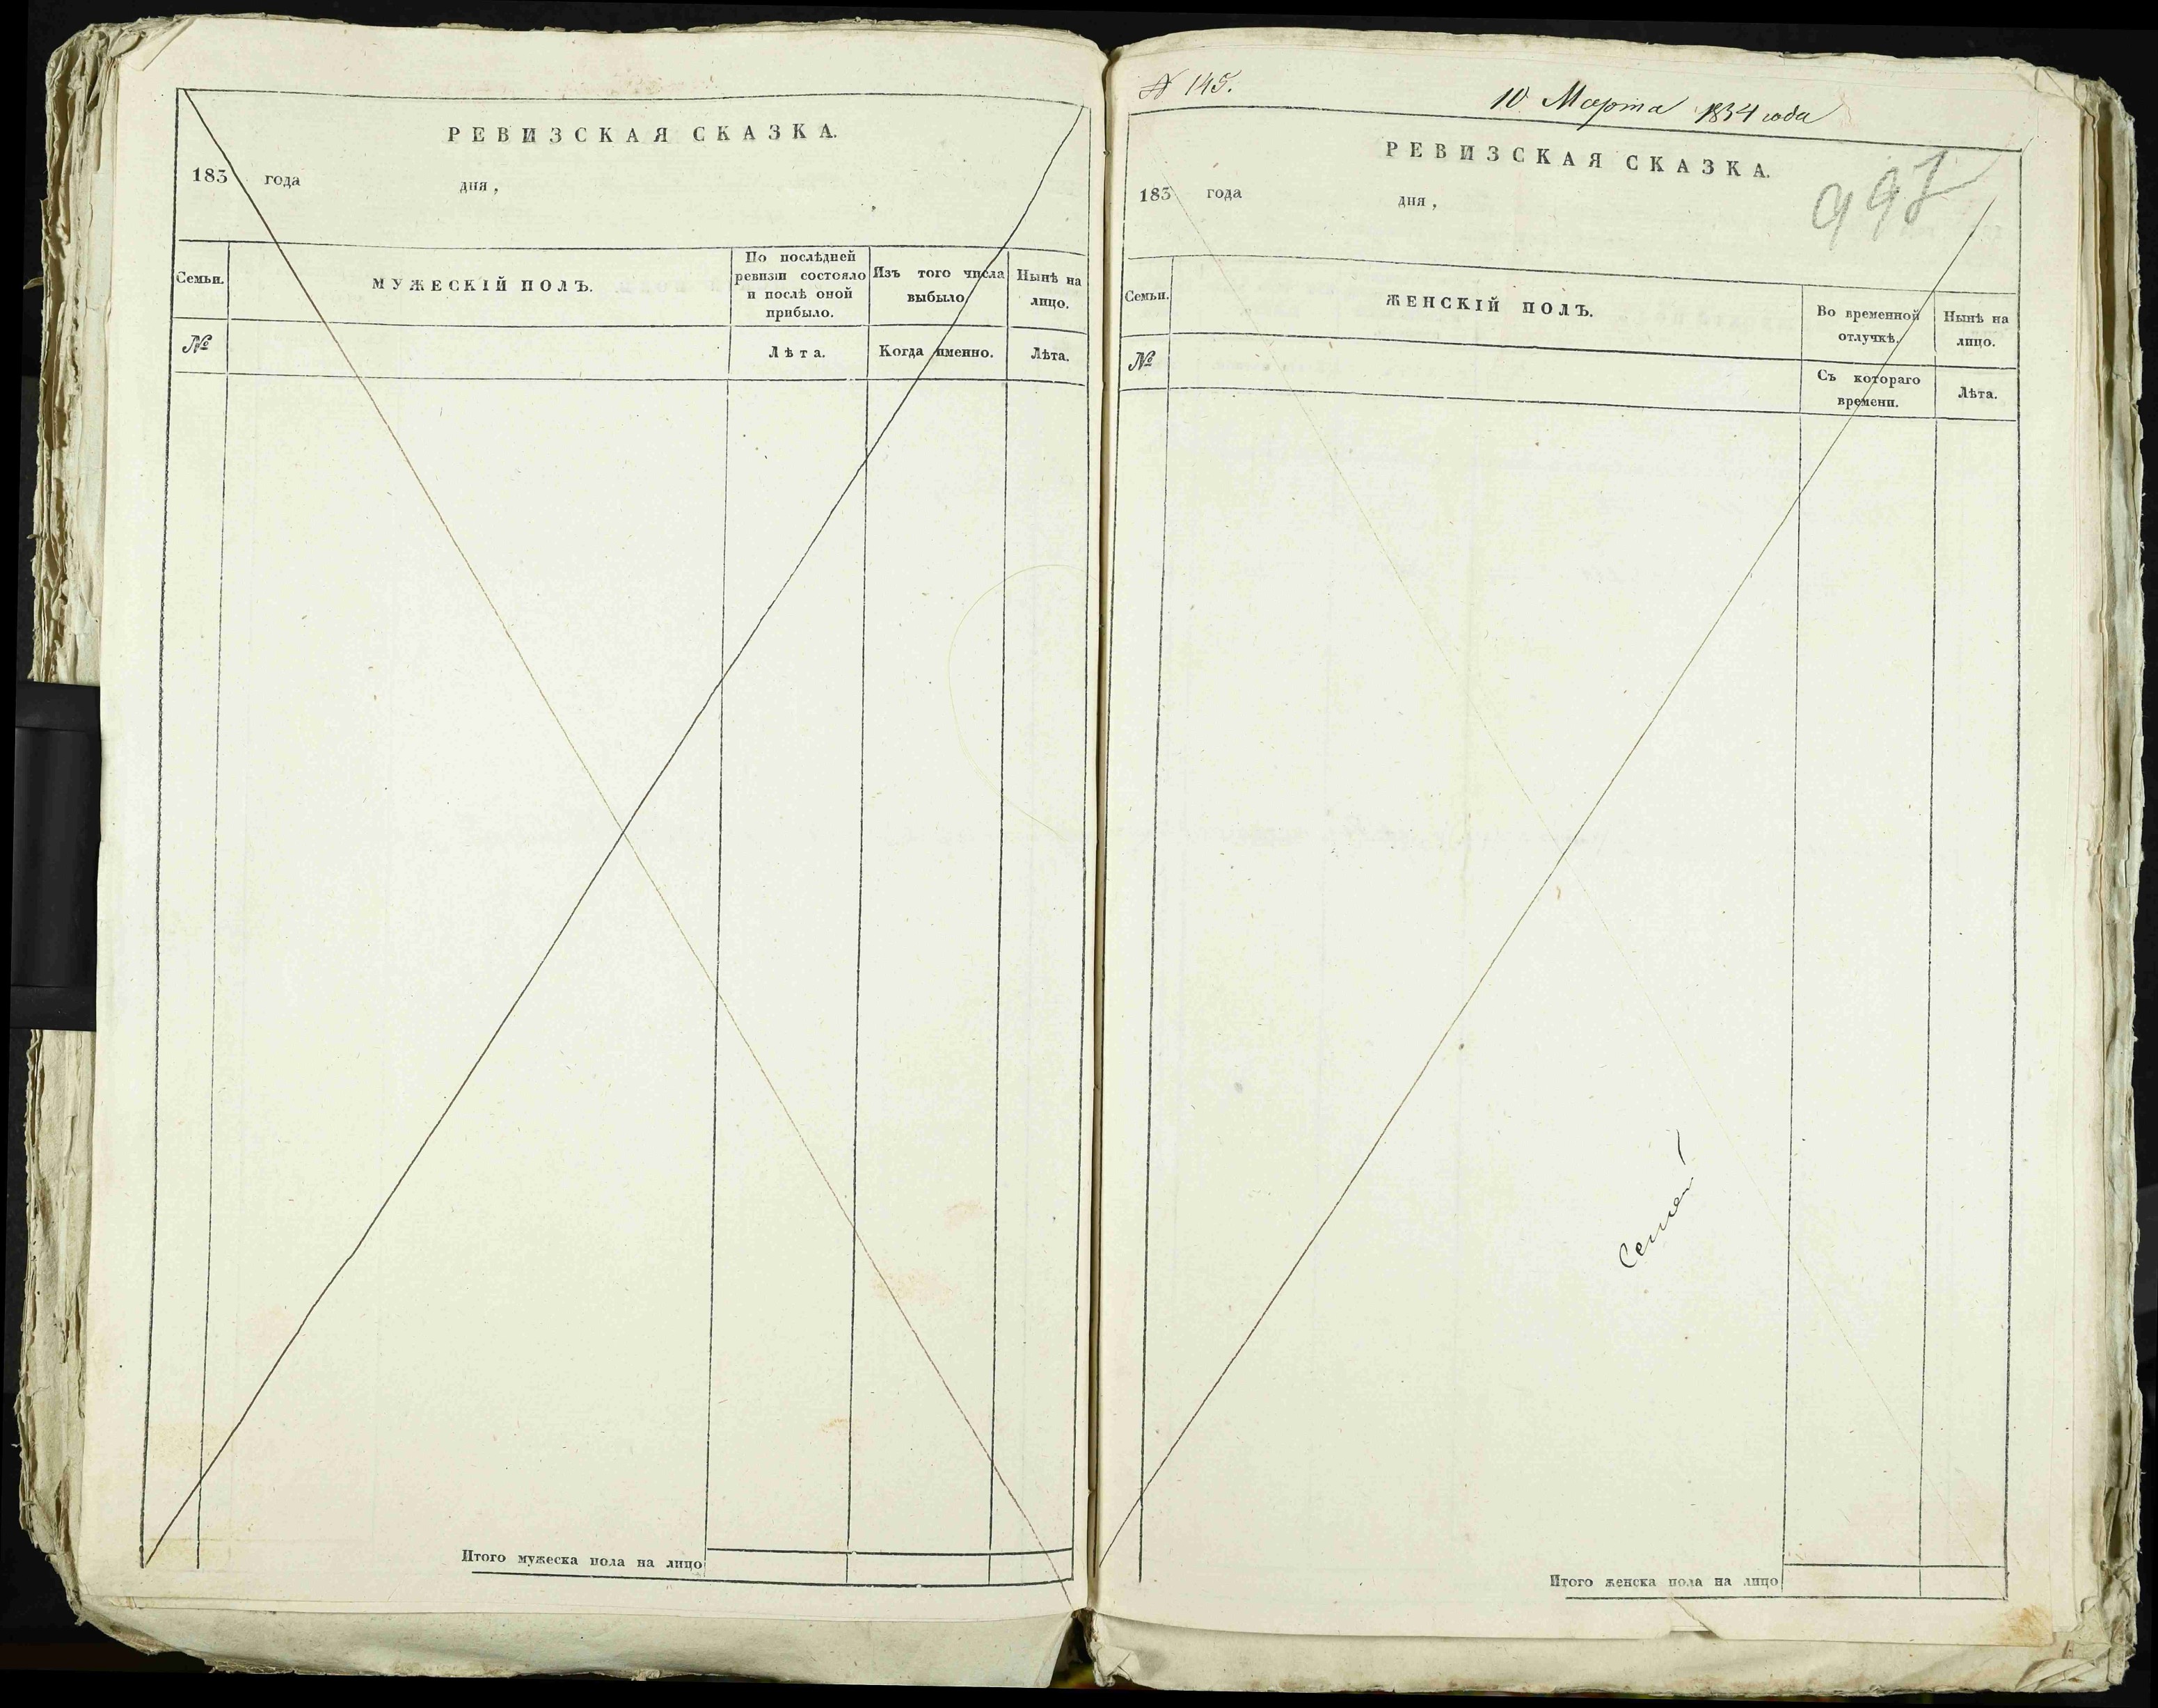 РЕВИЗСКАЯ СКАЗКА.
183 года дня,
Семьи.
МУЖЕСКІЙ ПОЛЪ.
По послѣдней
ревизіи состояло
и послѣ оной
прибыло.
Изъ того числа
выбыло.
Нынѣ на
лицо.
№
Лѣта.
Когда именно.
Лѣта.
Итого мужеска пола на лицо
№ 145.
10 Марта 1834 года
РЕВИЗСКАЯ СКАЗКА.
997
183 года дня,
Семьи.
ЖЕНСКІЙ ПОЛЪ.
Во временной
отлучкѣ.
Нынѣ на
лицо.
№
Съ котораго
времени.
Лѣта.
Итого женска пола на лицо